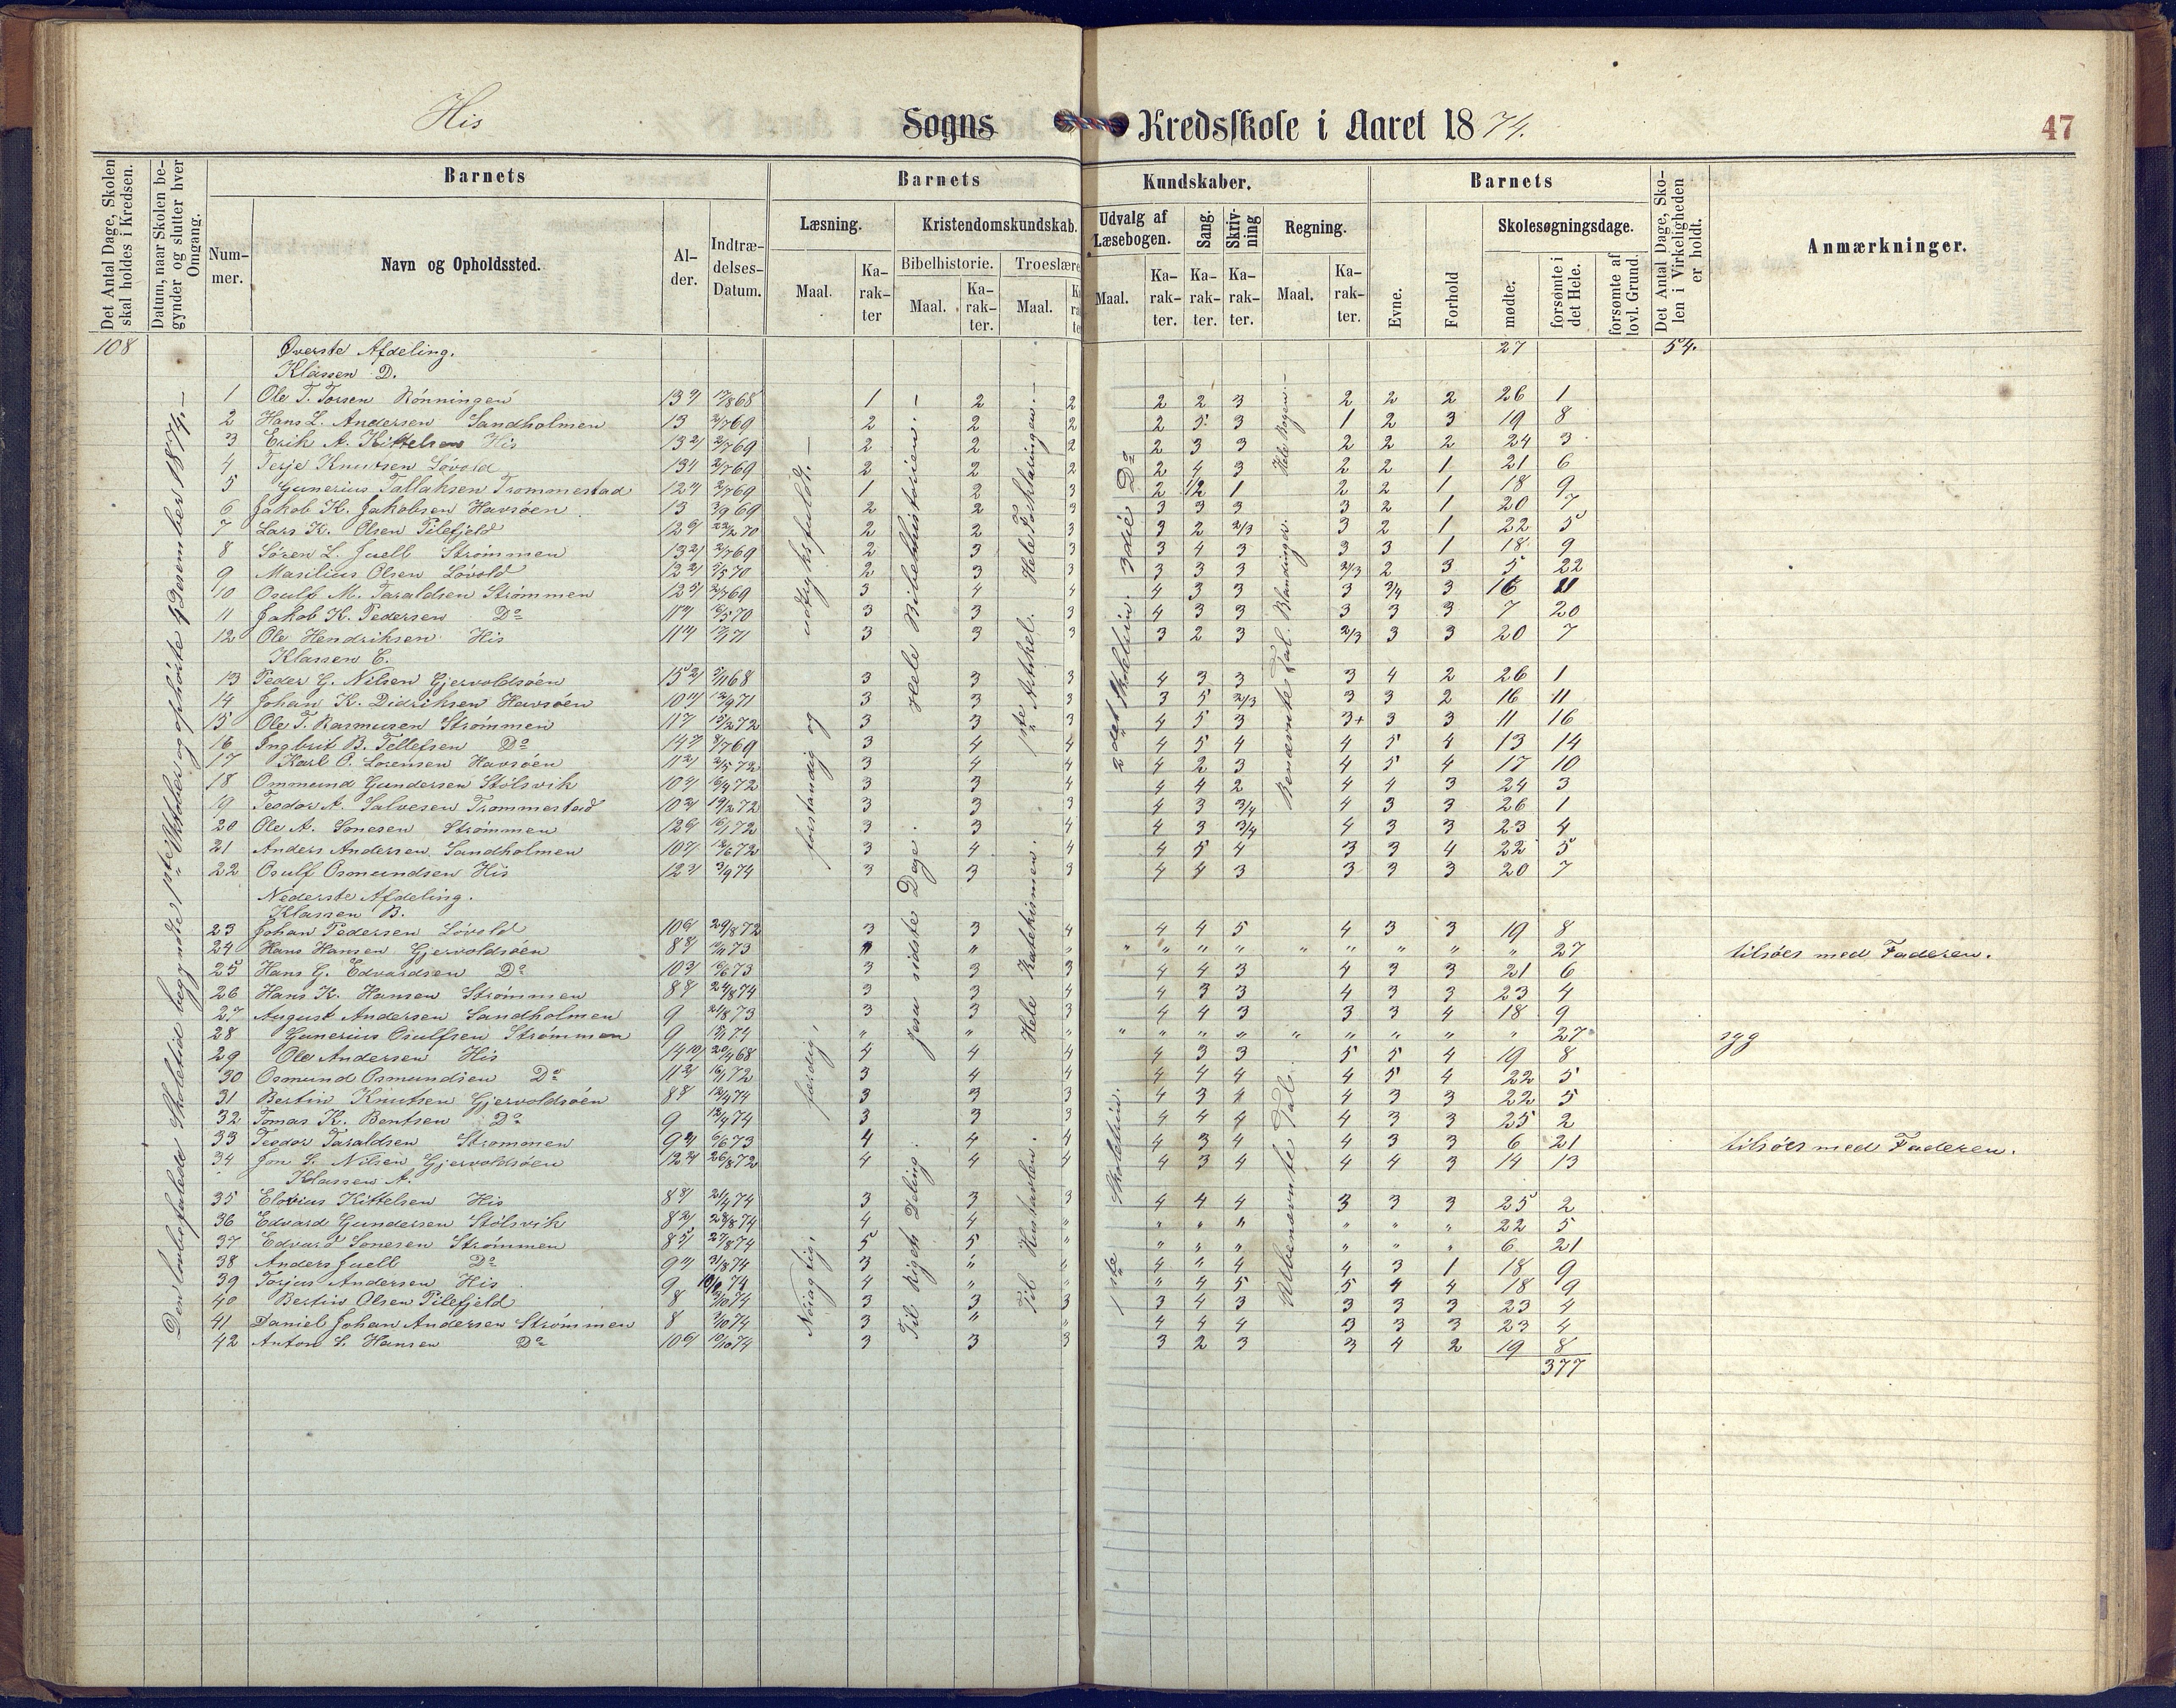 His Sogns Kredsskole i Aaret 1874.
47
Det Antal Dage, Skolen skal holdes i Kredsen.
Datum, naar Skolen begynder og slutter hver Omgang.
Barnets
Nummer.
Navn og Opholdssted.
Alder.
Indtrædelses-Datum.
Barnets Kundskaber.
Læsning.
Maal.
Karakter
Kristendomskundskab.
Bibelhistorie.
Maal.
Karakter.
Troeslære
Maal.
Udvalg af Læsebogen.
Maal.
Karakter.
Sang.
Karakter.
Skrivning
Karakter.
Regning.
Maal.
Karakter.
Barnets
Evne.
Forhold
Skolesøgningsdage.
mødte.
forsømte i det Hele.
forsømte af lovl. Grund.
Det Antal Dage, Skolen i Virkeligheden er holdt.
Anmærkninger.
Den lovbefalede Skoletid begyndte 1ste Oktober og ophørte 9 Desember 1874.
forstandig og udtryksfuldt.
Nøiagtig, færdig,
Hele Bibelhistorien.
Jesu sidste Dage.
Til Rigets Deling.
Hele Forklaringen.
1ste Artikel.
Hele Katekismen.
Til Hustavlen.
3die Do
2det Skoletrin.
1ste Skoletrin.
Hele Bogen.
Benævnte Tal. Blandinger.
Ubenevnte Tal.
108 Øverste Afdeling. 27 54.
Klassen D.
1 Ole T. Torsen Rønningen 1 2 2 2 2 3 2 2 2 26 1
2 Hans L. Andersen Sandholmen 13 2/7 69 2 2 2 2 5 3 1 2 3 19 8
3 Erik A. Kittelsen His 2/7 69 2 2 2 2 3 3 2 2 2 24 3
4 Terje Knutsen Løvold 2/7 69 2 2 2 2 4 3 2 2 1 21 6
5 Gunerius Tallaksen Trommestad 2/7 69 1 2 3 2 1/2 1 2 2 1 18 9
6 Jakob K. Jakobsen Havsøen 13 3/9 69 2 2 3 3 3 3 3 2 1 20 7
7 Lars K. Olsen Pilefjeld 22/2 70 2 2 3 3 2 2/3 3 2 1 22 5
8 Søren L. Juell Strømmen 2/7 69 2 3 3 3 4 3 3 3 1 18 9
9 Masilius Olsen Løvold 2 3 3 3 3 3 2/3 2 3 5 22
10 Osulf M. Taraldsen Strømmen 2/7 69 3 4 4 4 3 3 3 3/4 3 16 11
11 Jakob K. Pedersen Do 3 3 3 4 3 3 3 3 3 7 20
12 Ole Hendriksen His 3 3 3 3 2 3 2/3 3 3 20 7
Klassen C.
13 Peder G. Nilsen Gjervoldsøen 3 3 3 4 3 3 3 4 2 26 1
14 Johan K. Didriksen Havsøen 12/9 71 3 3 3 3 5 2/3 3 3 2 16 11
15 Ole T. Rasmusen Strømmen 15/2 72 3 3 3 4 5 3 3+ 3 3 11 16
16 Ingbrit B. Tellefsen Do 8/7 69 3 4 4 4 5 4 4 5 4 13 14
17 Karl O. Lorensen Havsøen 2/5 72 3 4 4 4 2 3 4 5 4 17 10
18 Ommund Gundersen Stølsvik 16/4 72 3 3 4 4 4 2 4 4 3 24 3
19 Teodor A. Salvesen Trommestad 19/2 72 3 3 3 4 3 3/4 4 3 3 26 1
20 Ole A. Sonesen Strømmen 16/1 72 3 3 4 4 3 3/4 4 3 3 23 4
21 Anders Andersen Sandholmen 12/6 72 3 4 4 4 5 4 3 3 4 22 5
22 Osulf Osmundsen His 3/9 74 3 3 3 4 4 3 3 3 3 20 7
Nederste Afdeling.
Klassen B.
23 Johan Pedersen Løvold 29/8 72 3 3 4 4 4 5 4 3 3 19 8
24 Hans Hansen Gjervoldsøen " " " " " " " " " " " " 27 tilsøes med Faderen.
25 Hans G. Edvardsen Do 3 3 3 4 4 3 4 3 3 21 6
26 Hans K. Hansen Strømmen 24/8 74 3 3 4 4 3 3 4 3 3 23 4
27 August Andersen Sandholmen 9 3 3 3 4 4 3 3 3 4 18 9
28 Gunerius Osulfsen Strømmen 9 " " " " " " " " " " " " 27 syg
29 Ole Andersen His 20/4 68 4 4 4 4 3 3 5 5 4 19 8
30 Osmund Osmundsen Do 16/1 72 3 4 4 4 4 4 4 5 4 22 5
31 Bertin Knutsen Gjervoldsøen 12/4 74 3 3 3 4 3 4 4 3 3 22 5
32 Tomas K. Bentsen Do 9 12/4 74 3 3 3 4 4 4 4 3 3 25 2
33 Teodor Taraldsen Strømmen 6/6 73 4 4 4 4 3 4 4 3 3 6 21 tilsøes med Faderen.
34 Jon S. Nilsen Gjervoldsøen 26/8 72 4 4 4 4 3 4 4 4 3 14 13
Klassen A.
35 Elovius Kittelsen His 21/4 74 3 3 3 4 4 4 3 3 3 25 2
36 Edvard Gundersen Stølsvik 28/8 74 4 4 " " " " " " " 22 5
37 Edvard Sonesen Strømmen 27/8 74 5 5 " " " " " " " 6 21
38 Anders Juell Do 31/8 74 3 " " 4 " 4 4 3 1 18 9
39 Torjus Andersen His 9 4 " " " 4 5 5 4 4 18 9
40 Bertin Olsen Pilefjeld 8 3 3 3 3 4 3 3 3 3 23 4
41 Daniel Johan Andersen Strømmen 8 3 " " 4 4 4 3 3 3 23 4
42 Anton S. Hansen Do 10/10 74 3 3 3 3 2 3 3 4 2 19 8
377